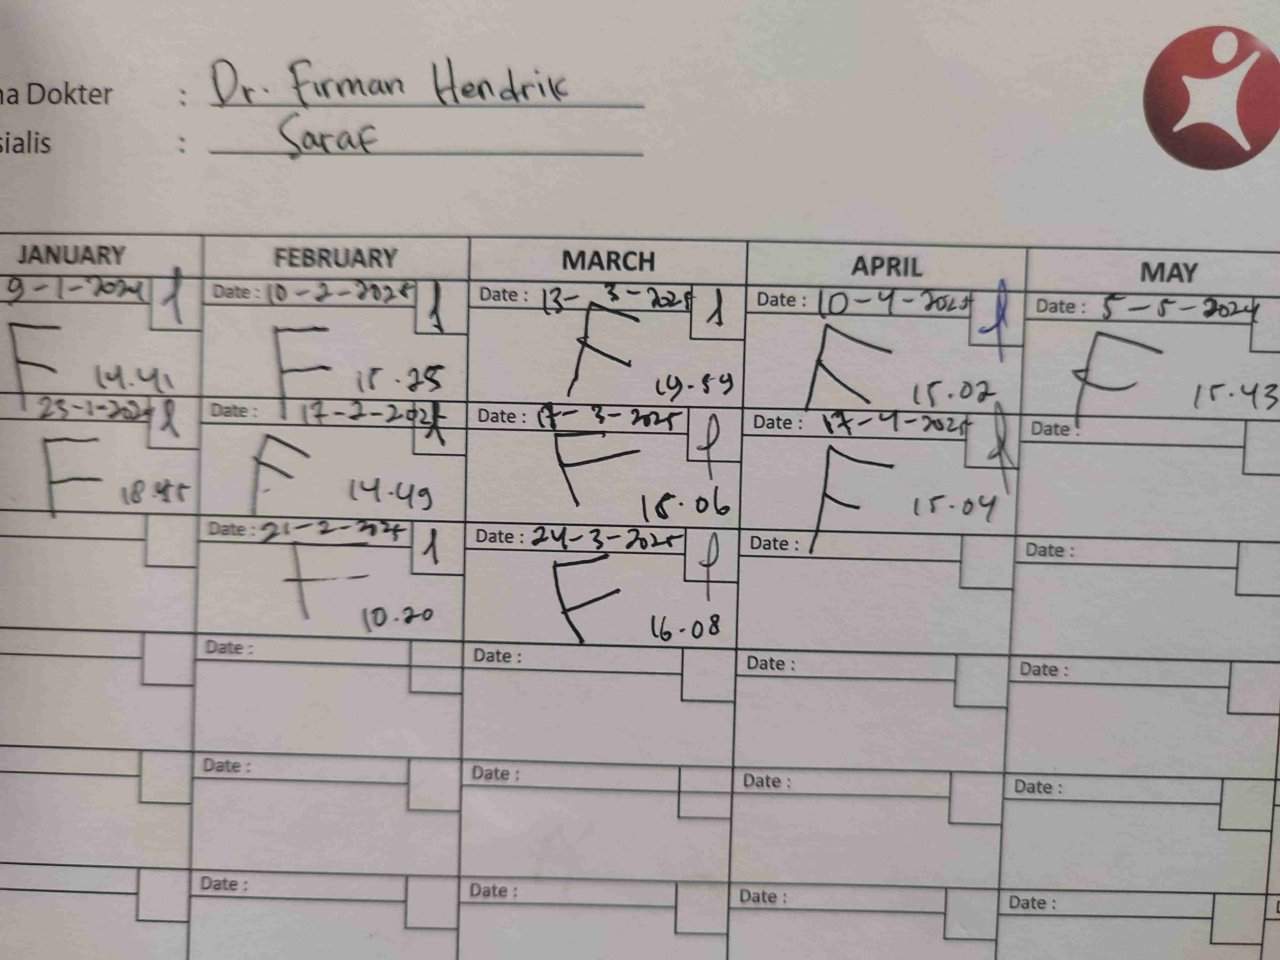 na Dokter : Dr. Firman Hendrik
sialis : Saraf
JANUARY FEBRUARY MARCH APRIL MAY
9-1-2024 Date : 10-2-2025 Date : 13-3-2025 Date : 10-4-2025 Date : 5-5-2024
F F F F F
14.41 15.25 19.59 15.02 15.43
23-1-2024 Date : 17-2-2025 Date : 17-3-2025 Date : 17-4-2025 Date :
F F F F
18.45 14.49 15.06 15.04
Date : 21-2-2025 Date : 24-3-2025 Date : Date :
F F
10.20 16.08
Date : Date : Date : Date :
Date : Date : Date : Date :
Date : Date : Date : Date :